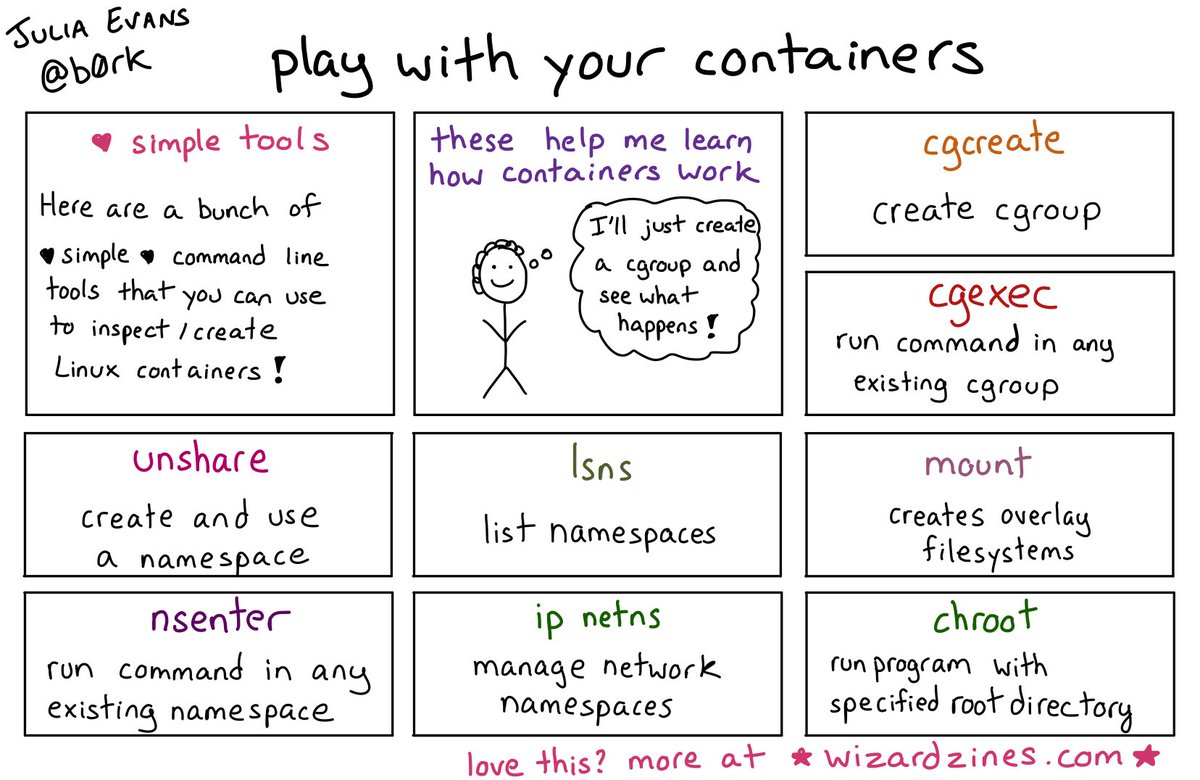 JULIA EVANS
@b0rk
play with your containers
♥ simple tools
Here are a bunch of
♥ simple ♥ command line
tools that you can use
to inspect / create
Linux containers!
these help me learn
how containers work
I'll just create
a cgroup and
see what
happens!
cgcreate
create cgroup
cgexec
run command in any
existing cgroup
unshare
create and use
a namespace
lsns
list namespaces
mount
creates overlay
filesystems
nsenter
run command in any
existing namespace
ip netns
manage network
namespaces
chroot
run program with
specified root directory
love this? more at ★ wizardzines.com ★